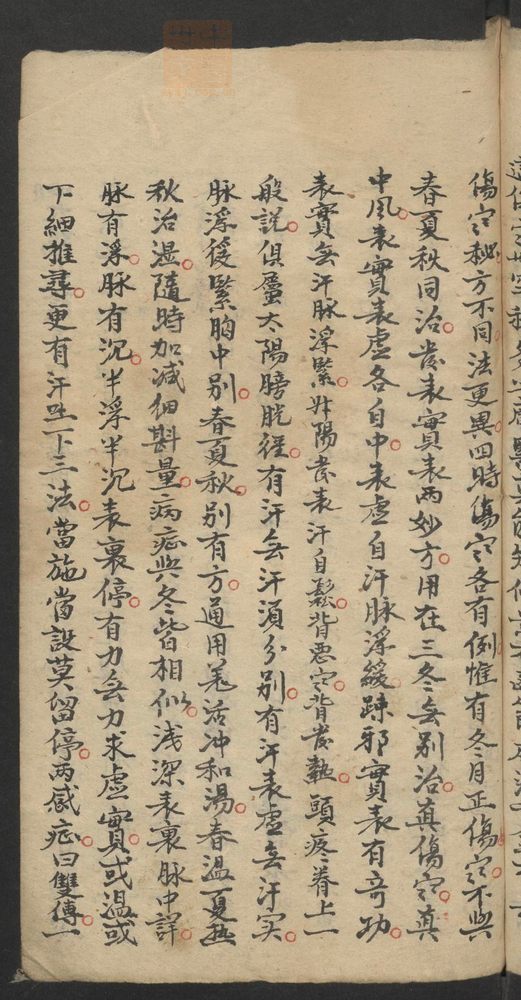 傷寒秘方不同法更異四時傷寒各有例惟有冬月正傷寒不與
春夏秋同治發表實表兩妙方用在三冬無別治真傷寒真
中風表實表虛各自中表虛自汗脉浮緩踈邪實表有奇功
表實無汗脉浮緊升陽發表汗自鬆皆惡寒皆發熱頭疼脊上一
般說俱屬太陽膀胱經有汗無汗須分別有汗表虛無汗实
脉浮緩緊胸中別春夏秋別有方通用羗活冲和湯春温夏热
秋治湿隨時加减细斟量病症與冬皆相似浅深表裏脉中詳
脉有浮脉有沉半浮半沉表裏停有力無力求虛實或温或
下細推尋更有汗吐下三法當施當設莫留停两感症曰雙傳一